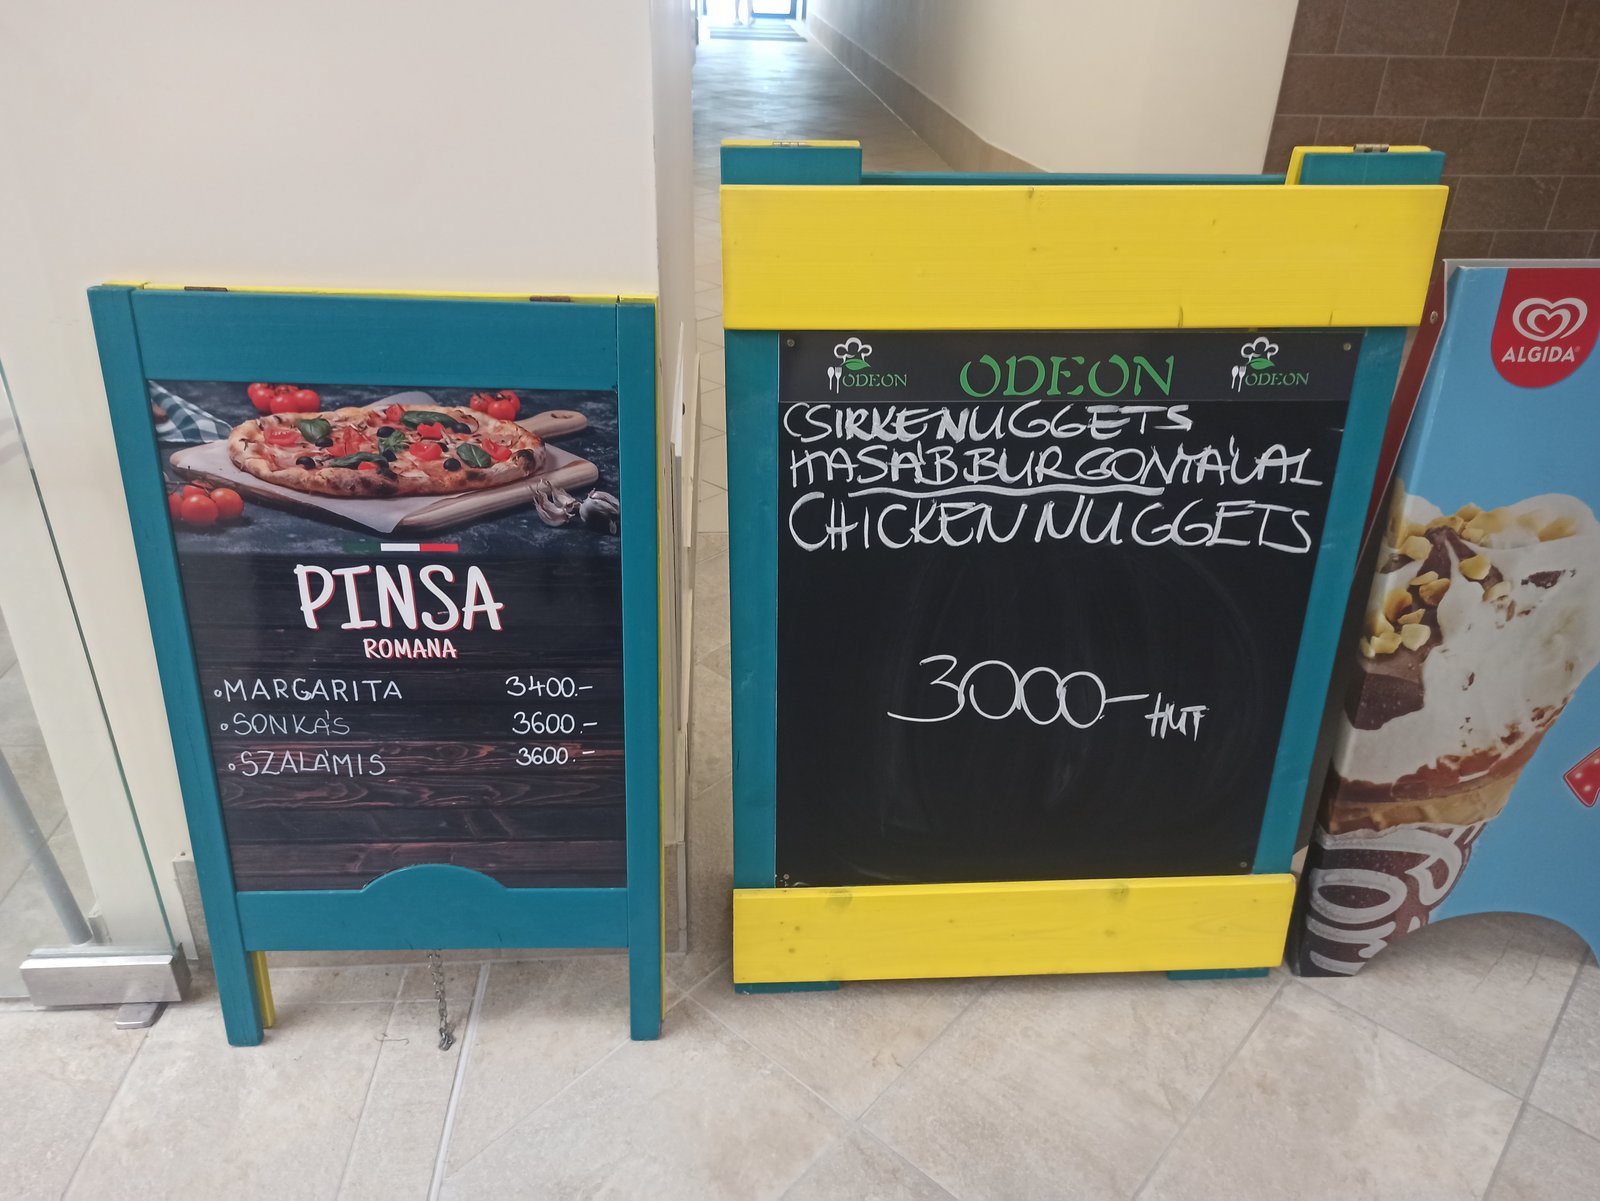 PINSA
ROMANA
MARGARITA 3400.-
SONKÁS 3600.-
SZALÁMIS 3600.-
ODEON
ODEON
ODEON
CSIRKENUGGETS
HASÁBBURGONYÁVAL
CHICKEN NUGGETS
3000.- HUF
ALGIDA